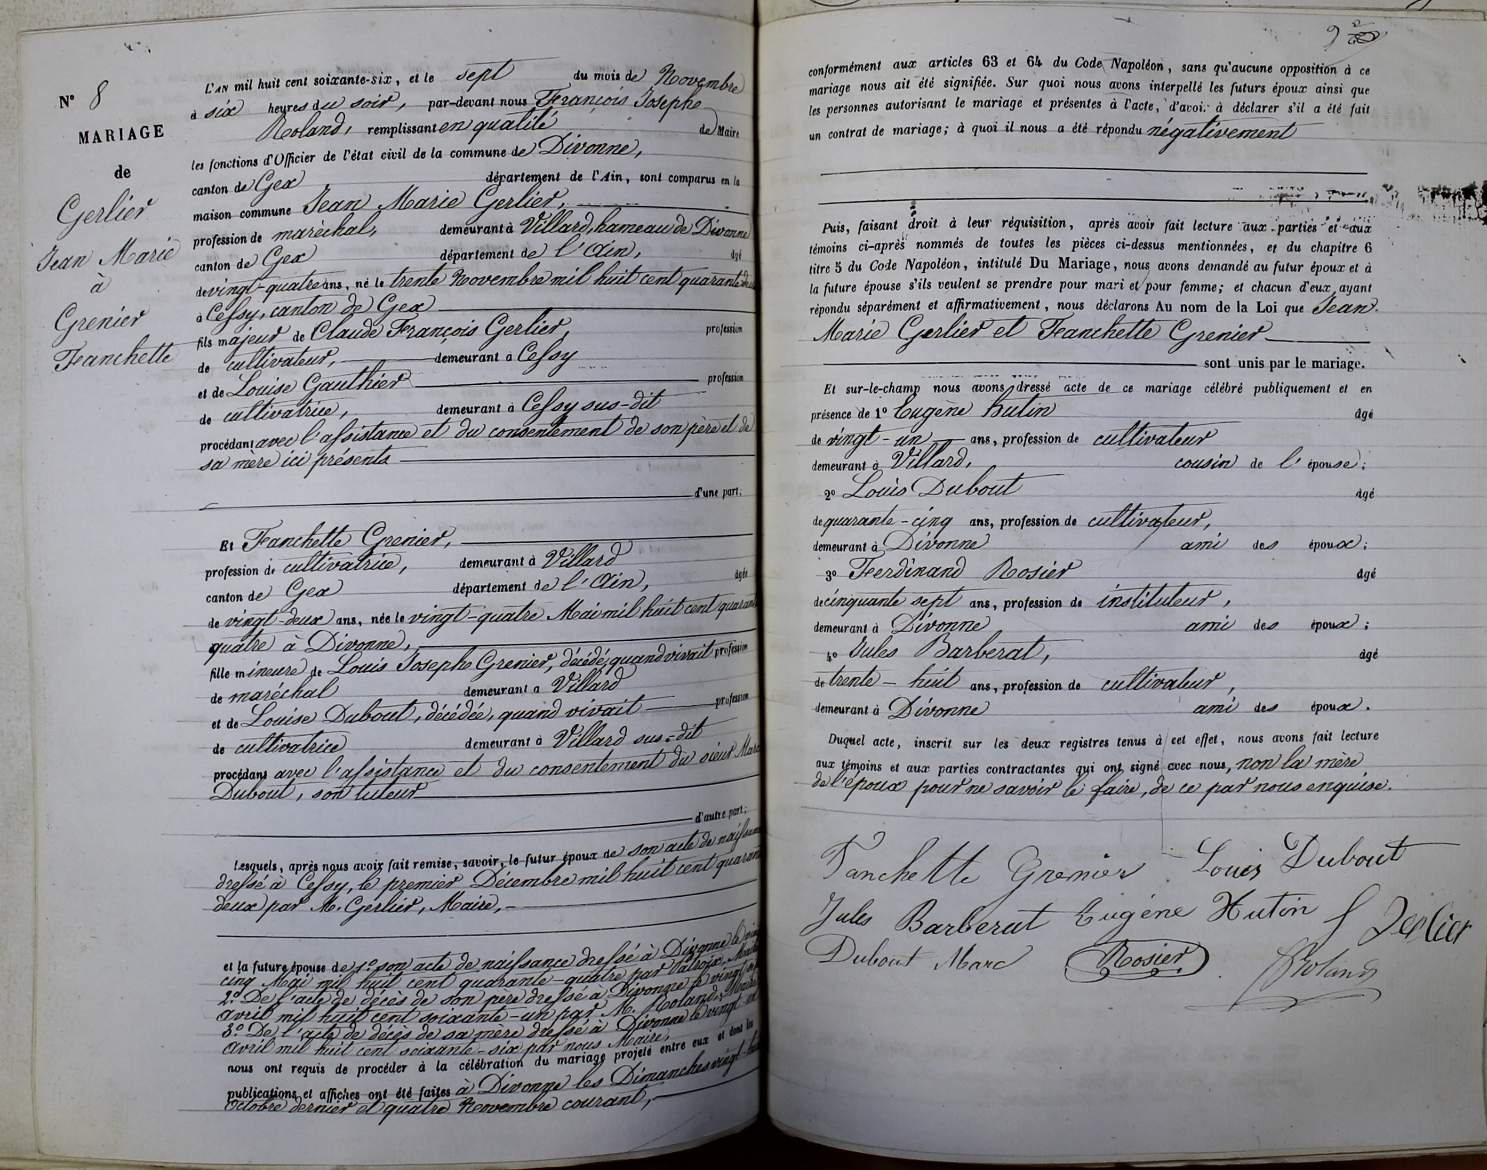 N° 8
MARIAGE
de
Gerlier
Jean Marie
à
Grenier
Fanchette
L'AN mil huit cent soixante-six, et le sept du mois de Novembre
à six heures du soir, par-devant nous François Josephe
Roland, remplissant en qualité de Maire
les fonctions d'Officier de l'état civil de la commune de Divonne,
canton de Gex département de l'Ain, sont comparus en la
maison commune Jean Marie Gerlier,
profession de maréchal, demeurant à Villard, hameau de Divonne
canton de Gex département de l'Ain, âgé
de vingt-quatre ans, né le trente Novembre mil huit cent quarante
à Cessy, canton de Gex
fils majeur de Claude François Gerlier, profession
de cultivateur, demeurant à Cessy
et de Louise Gauthier profession
de cultivatrice, demeurant à Cessy sus-dit
procédant avec l'assistance et du consentement de son père et de
sa mère ici présents
d'une part;
Et Fanchette Grenier,
profession de cultivatrice, demeurant à Villard
canton de Gex département de l'Ain, âgée
de vingt-deux ans, née le vingt-quatre Mai mil huit cent quarante
quatre à Divonne,
fille mineure de Louis Josephe Grenier, décédé, quand vivait profession
de maréchal demeurant à Villard
et de Louise Dubout, décédée, quand vivait profession
de cultivatrice demeurant à Villard sus-dit
procédant avec l'assistance et du consentement du sieur Marc
Dubout, son tuteur
d'autre part;
Lesquels, après nous avoir fait remise, savoir, le futur époux de son acte de naissance
dressé à Cessy, le premier Décembre mil huit cent quarante
deux par M. Gerlier, Maire,
et la future épouse de 1° son acte de naissance dressé à Divonne le vingt
cinq Mai mil huit cent quarante-quatre par
2° De l'acte de décès de son père dressé à Divonne le vingt
avril mil huit cent soixante-un par M. Roland, Maire
3° De l'acte de décès de sa mère dressé à Divonne le vingt
avril mil huit cent soixante-six par nous Maire,
nous ont requis de procéder à la célébration du mariage projeté entre eux et dont les
publications et affiches ont été faites à Divonne les Dimanches vingt-huit
Octobre dernier et quatre Novembre courant,
conformément aux articles 63 et 64 du Code Napoléon, sans qu'aucune opposition à ce
mariage nous ait été signifiée. Sur quoi nous avons interpellé les futurs époux ainsi que
les personnes autorisant le mariage et présentes à l'acte, d'avoir à déclarer s'il a été fait
un contrat de mariage; à quoi il nous a été répondu négativement
Puis, faisant droit à leur réquisition, après avoir fait lecture aux parties et aux
témoins ci-après nommés de toutes les pièces ci-dessus mentionnées, et du chapitre 6
titre 5 du Code Napoléon, intitulé Du Mariage, nous avons demandé au futur époux et à
la future épouse s'ils veulent se prendre pour mari et pour femme; et chacun d'eux ayant
répondu séparément et affirmativement, nous déclarons Au nom de la Loi que Jean
Marie Gerlier et Fanchette Grenier
sont unis par le mariage.
Et sur-le-champ nous avons dressé acte de ce mariage célébré publiquement et en
présence de 1° Eugène hutin âgé
de vingt-un ans, profession de cultivateur
demeurant à Villard, cousin de l'épouse;
2° Louis Dubout âgé
de quarante-cinq ans, profession de cultivateur,
demeurant à Divonne ami des époux;
3° Ferdinand Rosier âgé
de cinquante sept ans, profession de instituteur,
demeurant à Divonne ami des époux;
4° Jules Barberat, âgé
de trente-huit ans, profession de cultivateur,
demeurant à Divonne ami des époux.
Duquel acte, inscrit sur les deux registres tenus à cet effet, nous avons fait lecture
aux témoins et aux parties contractantes qui ont signé avec nous, non la mère
de l'époux pour ne savoir le faire, de ce par nous enquise.
Fanchette Grenier Louis Dubout
Jules Barberat Eugène Hutin f Jerlier
Dubout Marc Rosier Roland